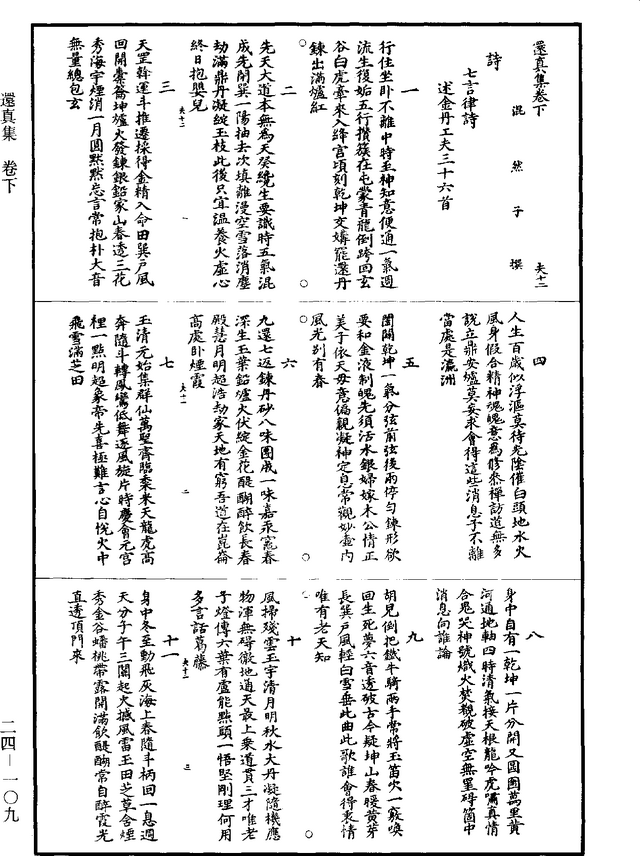 還真集卷下
混然子撰　夫十二
詩
七言律詩
述金丹工夫三十六首
一
行住坐卧不離中時至神知意便通一氣週
流生後始五行攢簇在屯蒙青龍倒跨回玄
谷白虎牽來入絳宫頃刻乾坤交媾罷還丹
鍊出滿爐紅
二
先天大道本無為天癸纔生要識時五氣混
成先開巽一陽抽去次填離漫空雪落消塵
劫滿鼎丹凝綻玉枝此後只宜温養火虚心
終日抱嬰兒
夫十二　一
三
天罡斡運斗推遷採得金精入命田巽戶風
回開橐籥坤爐火發鍊銀鉛家山春透三花
秀海宇煙消一月圓默默忘言常抱朴大音
無量總包玄
四
人生百歲似浮漚莫待光陰催白頭地水火
風身假合精神魂魄意為修叅禪訪道無多
説立鼎安爐莫妄求會得這些消息子不離
當處是瀛洲
五
闔闢乾坤一氣分弦前弦後兩停勻鍊形欲
要和金液制魄先須活水銀婦嫁木公情正
美子依天母意偏親凝神定息常觀妙壺内
風光别有春
六
九還七返鍊丹砂八味團成一味嘉汞竈春
深生玉葉鉛爐火伏綻金花醍醐醉飲長春
殿慧月明超浩劫家天地有窮吾道在崑崙
高處卧煙霞
夫十二　二
七
玉清元始集群仙萬聖齊臨黍米天龍虎高
奔隨斗轉鳳鸞低舞逐風旋片時慶會元宫
裡一點明超象帝先喜極難言心自悦火中
飛雪滿芝田
八
身中自有一乾坤一片分開又圓圇萬里黄
河通地軸四時清氣接天根龍吟虎嘯真情
合鬼哭神號熾火焚覷破虚空無罣碍箇中
消息向誰論
九
胡兒倒把鐵牛騎兩手常將玉笛吹一竅喚
回生死夢六音透破古今疑坤山春暖黄芽
長巽戶風輕白雪垂此曲此歌誰會得衷情
唯有老天知
十
風掃殘雲玉宇清月明秋水大丹凝隨機應
物渾無碍徹地通天最上乘道貫三才唯老
子燈傳六葉有盧能點頭一悟堅剛理何用
多言話葛藤
夫十二　三
十一
身中冬至動飛灰海上春隨斗柄回一息週
天分子午三關起火撼風雷玉田芝草含煙
秀金谷蟠桃帶露開滿飲醍醐常自醉霞光
直透頂門來
還真集　卷下
二四—一〇九